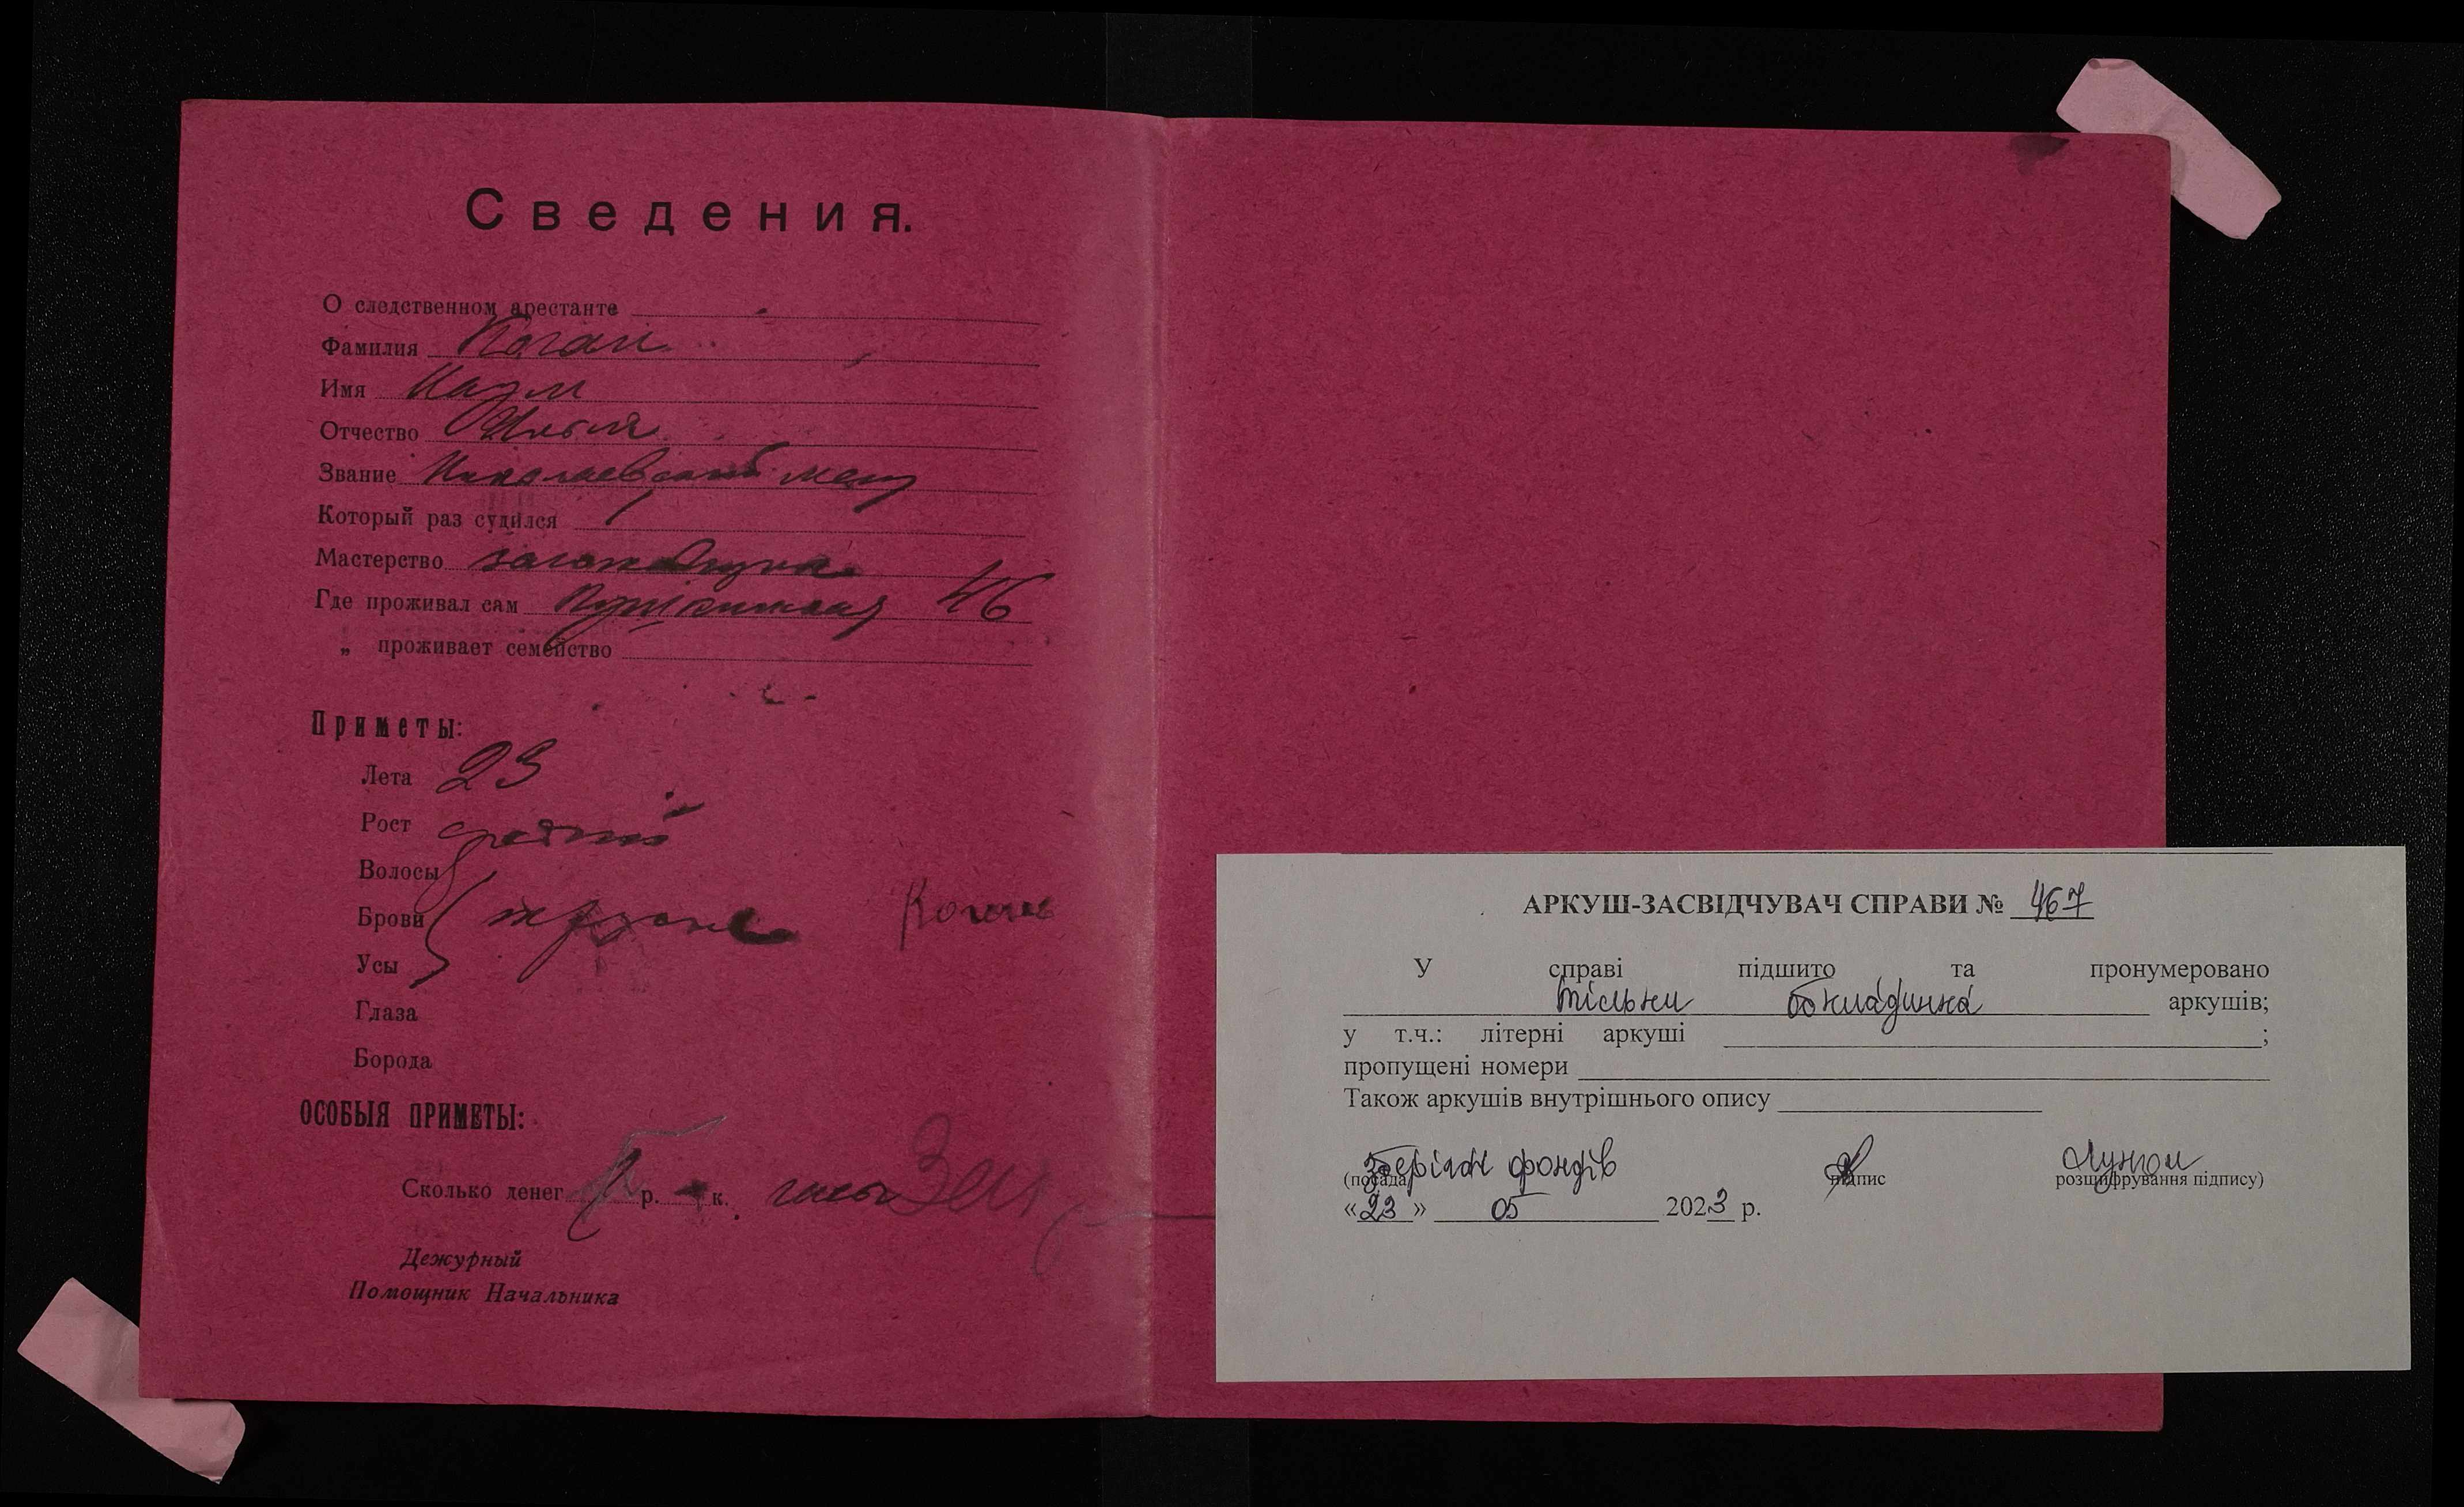 Сведения.
О следственном арестанте
Фамилия Коган
Имя Наум
Отчество Ильев
Звание Николаевский мещ
Который раз судился 1
Мастерство заготовщик
Где проживал сам Пушкинская 46
„ проживает семейство
Приметы:
Лета 23
Рост средний
Волосы
Брови
Усы
Глаза
Борода
Коган
ОСОБЫЯ ПРИМЕТЫ:
Сколько денег р. к.
Дежурный
Помощник Начальника
АРКУШ-ЗАСВІДЧУВАЧ СПРАВИ № 467
У справі підшито та пронумеровано
тільки обкладинка аркушів;
у т.ч.: літерні аркуші ;
пропущені номери
Також аркушів внутрішнього опису
Зберігач фондів
(посада підпис розшифрування підпису)
«23» 05 2023 р.